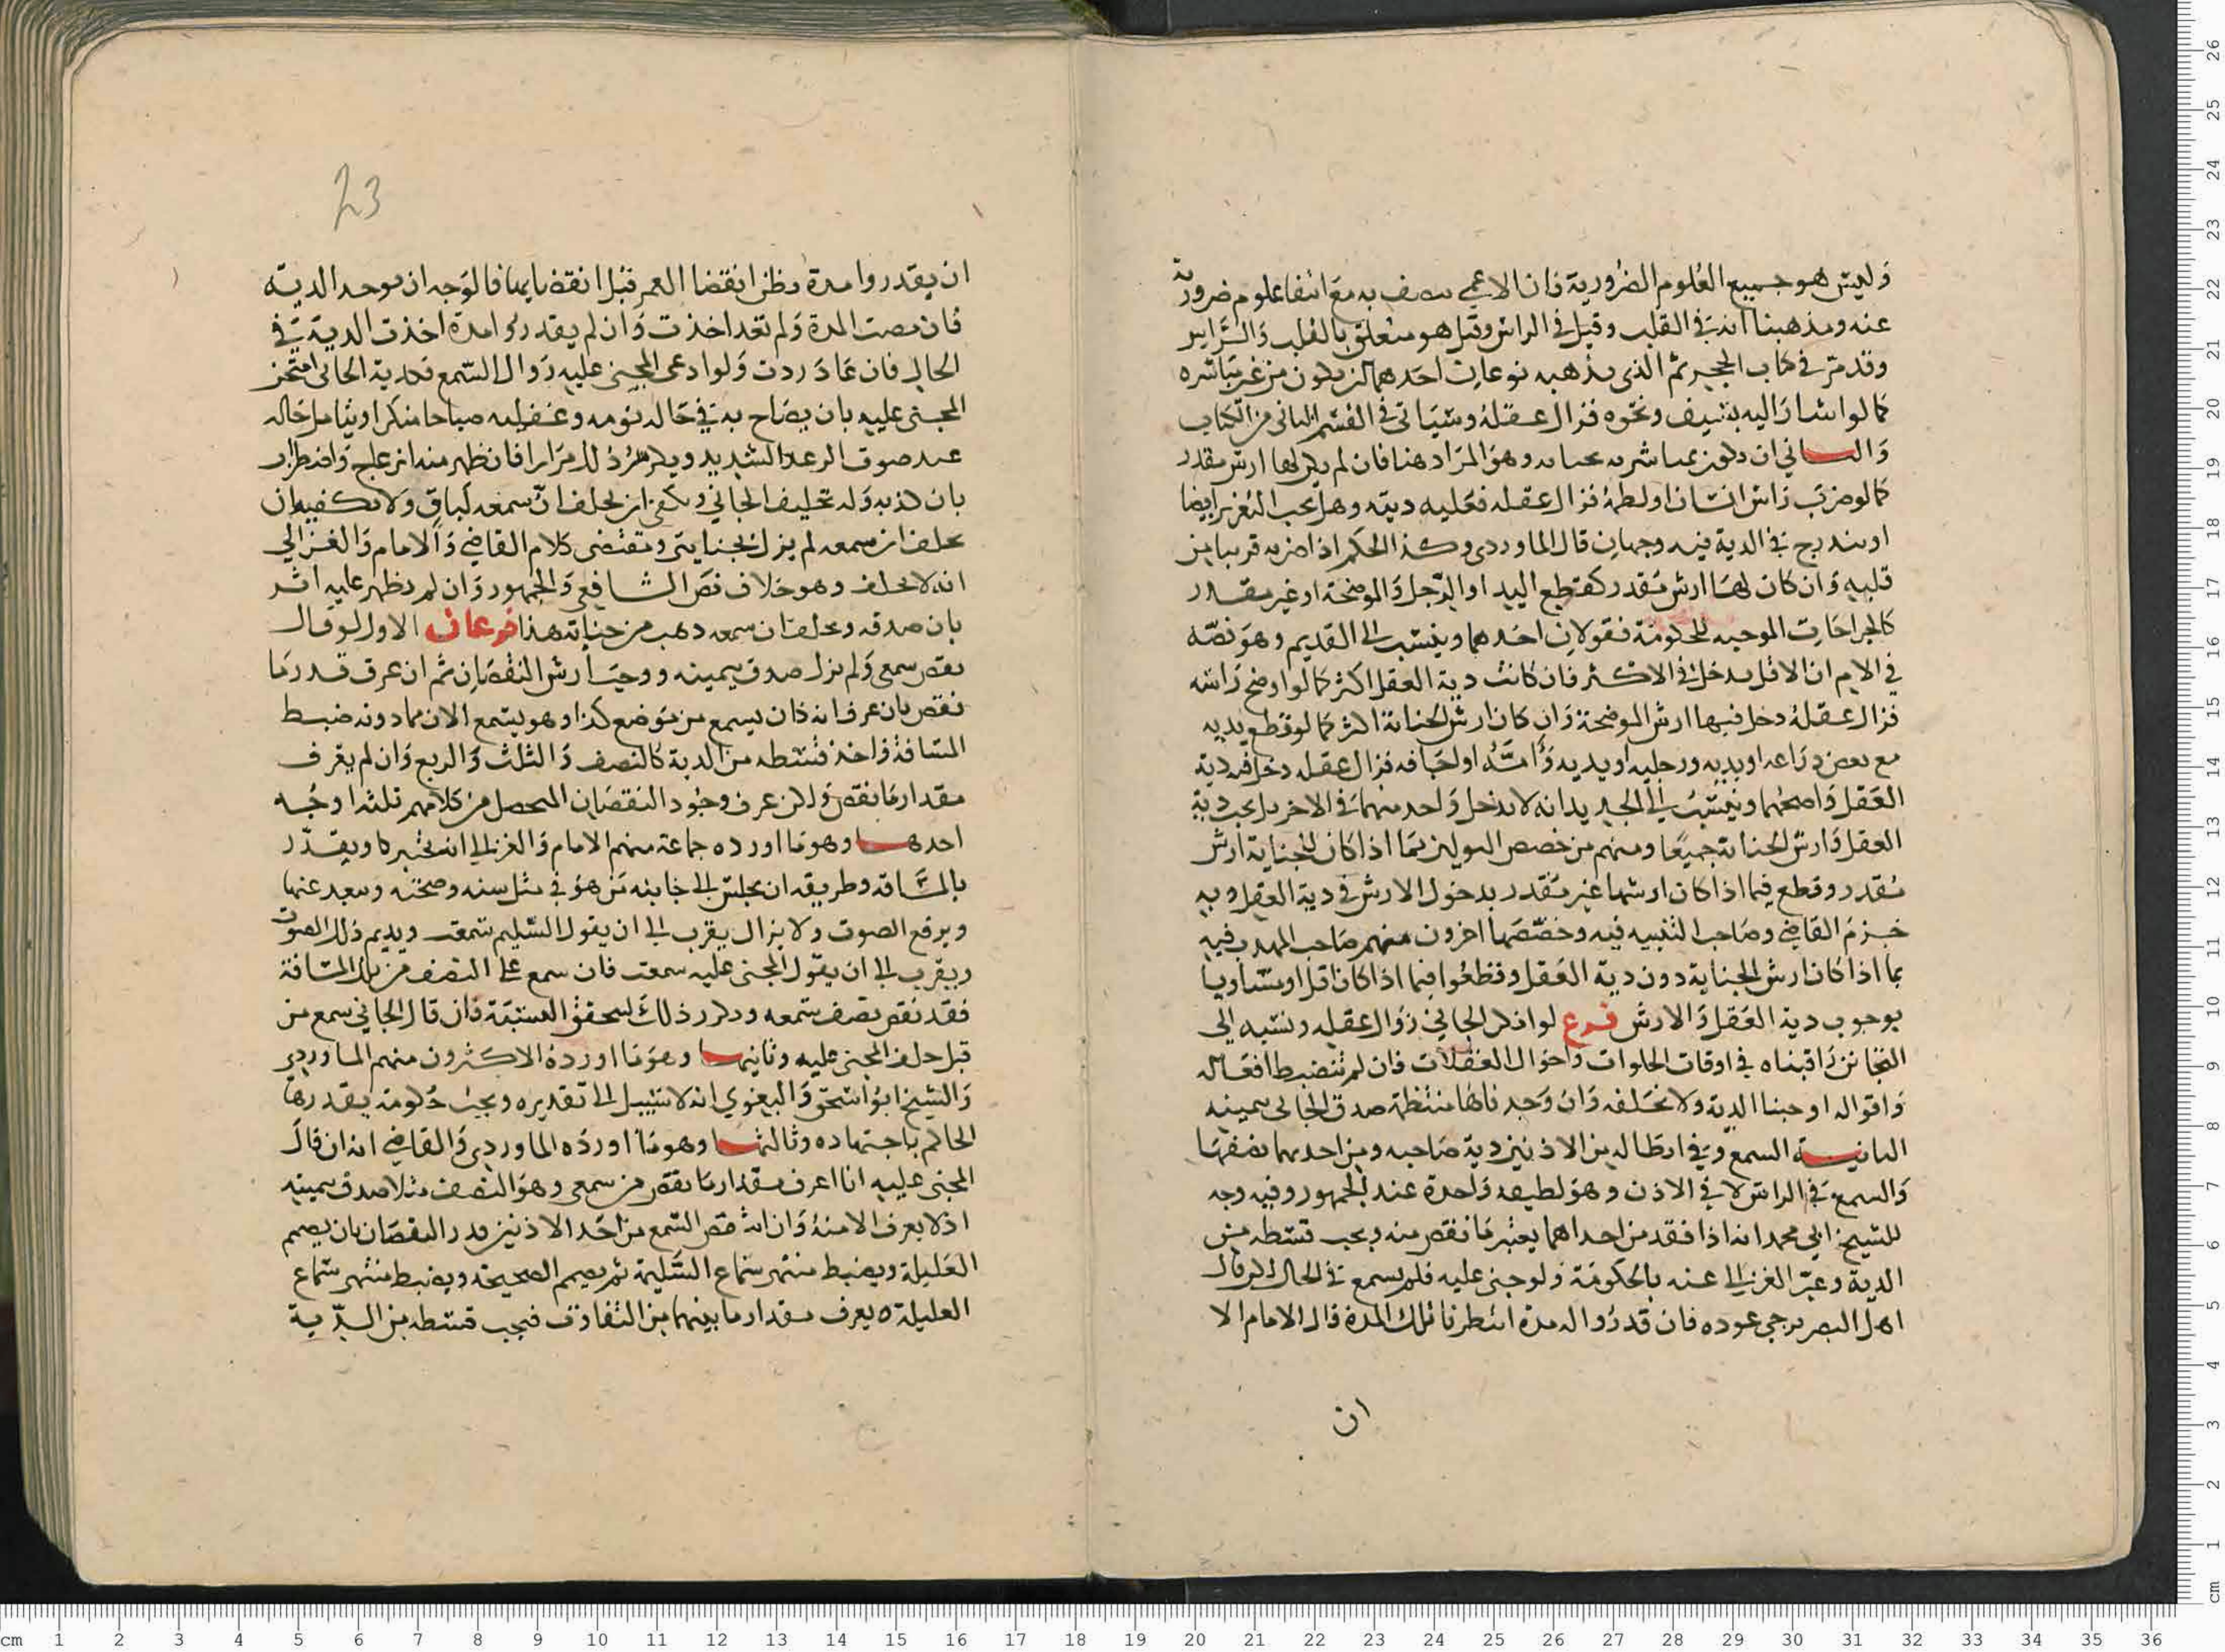 وليس هو جميع العلوم الضرورية فان الاعمى متصف به مع انتفا علوم ضرورية
عنه ومذهبنا انه في القلب وقيل في الراس وقيل هو متعلق بالقلب والراس
وقد مر في كتاب الحجر ثم الذي يذهبه نوعان احدهما ان يكون من غير مباشره
كما لو اشار اليه بسيف ونحوه فزال عقله وسياتي في القسم الثاني من الكتاب
والثاني ان يكون بمباشرته بجنايه وهو المراد هنا فان لم يكن لها ارش مقدر
كما لو ضرب راس انسان او لطمه فزال عقله فعليه ديته وهل يجب التعزير ايضا
او يندرج في الدية فيه وجهان قال الماوردي وكذا الحكم اذا ضربه قريبا من
قلبه وان كان لها ارش مقدر كقطع اليد او الرجل والموضحة او غير مقدر
كالجراحات الموجبه للحكومة فقولان احدهما وينسب الى القديم وهو نصه
في الام ان الاقل يدخل في الاكثر فان كانت دية العقل اكثر كما لو اوضح راسه
فزال عقله دخل فيها ارش الموضحة وان كان ارش الجناية اكثر كما لو قطع يديه
مع بعض ذراعه او يديه ورجليه او يديه وامه او اجافه فزال عقله دخل فيه دية
العقل واصحهما وينسب الى الجديد انه لا يدخل واحد منهما في الاخر بل يجب دية
العقل وارش الجناية جميعا ومنهم من خصص القولين بما اذا كان للجناية ارش
مقدر وقطع فيما اذا كان ارشها غير مقدر بدخول الارش في دية العقل وبه
جزم القاضي وصاحب التنبيه فيه وخصصها اخرون منهم صاحب المهذب فيه
بما اذا كان ارش الجناية دون دية العقل وقطعوا فيما اذا كان اقل او مساويا
بوجوب دية العقل والارش فرع لو انكر الجاني زوال عقله ونسبه الى
التجانن راقبناه في اوقات الخلوات واحوال الغفلات فان لم تنضبط افعاله
واقواله اوجبنا الدية ولا نحلفه وان وجدناها منتظمة صدق الجاني بيمينه
الثانية السمع وفي ابطاله من الاذنين دية صاحبه ومن احديهما نصفها
والسمع في الراس لا في الاذن وهو لطيفه واحدة عند الجمهور وفيه وجه
للشيخ ابي محمد انه اذا فقد من احداهما يعتبر ما نقص منه ويجب قسطه من
الدية وعبر الغزالي عنه بالحكومة ولو جنى عليه فلم يسمع في الحال لكن قال
اهل البصر يرجى عوده فان قدروا له مدة انتظرنا تلك المدة قال الامام الا
ان
23
ان يقدروا مدة يظن انقضا العمر قبل انقضايها فالوجه ان يوخذ الدية
فان مضت المدة ولم تعد اخذت وان لم يقدروا مدة اخذت الدية في
الحال فان عاد ردت ولو ادعى المجنى عليه زوال السمع فكذبه الجاني امتحن
المجنى عليه بان يصاح به في حالة نومه وغفلته صياحا منكرا ويتامل حاله
عند صوت الرعد الشديد ويكرر ذلك مرارا فان ظهر منه انزعاج واضطراب
بان كذبه وله تحليف الجاني ويكفي ان يحلف ان سمعه لباق ولا يكفيه ان
يحلف ان سمعه لم يزل بجنايتي ومقتضى كلام القاضي والامام والغزالي
انه لا يحلف وهو خلاف نص الشافعي والجمهور وان لم يظهر عليه اثر
بان صدقه ويحلف ان سمعه ذهب من جنايته هذا فرعان الاول لو قال
نقص سمعي ولم يزل صدق بيمينه ووجب ارش النقصان ثم ان عرف قدر ما
نقص بان عرف انه كان يسمع من موضع كذا وهو يسمع الان مما دونه ضبط
المسافة واخذ قسطه من الدية كالنصف والثلث والربع وان لم يعرف
مقدار ما نقص ولكن عرف وجود النقصان المحصل من كلامهم ثلثة اوجه
احدها وهو ما اورده جماعة منهم الامام والغزالي انه يختبر كا ويقدر
بالمسافة وطريقه ان يجلس الى جانبه من هو في مثل سنه وصحته ويبعد عنهما
ويرفع الصوت ولا يزال يقرب الى ان يقول السليم سمعت ويديم ذلك الصوت
ويقرب الى ان يقول المجنى عليه سمعت فان سمع على النصف من تلك المسافة
فقد نقص نصف سمعه ويكرر ذلك ليتحقق النسبة فان قال الجاني سمع من
قبل حلف المجنى عليه وثانيها وهو ما اورده الاكثرون منهم الماوردي
والشيخ ابو اسحق والبغوي انه لا سبيل الى تقديره ويجب حكومة يقدرها
الحاكم باجتهاده وثالثها وهو ما اورده الماوردي والقاضي انه ان قال
المجنى عليه انا اعرف مقدار ما نقص من سمعي وهو النصف مثلا صدق بيمينه
اذ لا يعرف الا منه وان انتقص السمع من احد الاذنين قدر النقصان بان يصم
العليلة ويضبط منتهى سماع السليمة ثم يصم الصحيحة ويضبط منتهى سماع
العليلة ويعرف مقدار ما بينهما من التفاوت فيجب قسطه من الدية